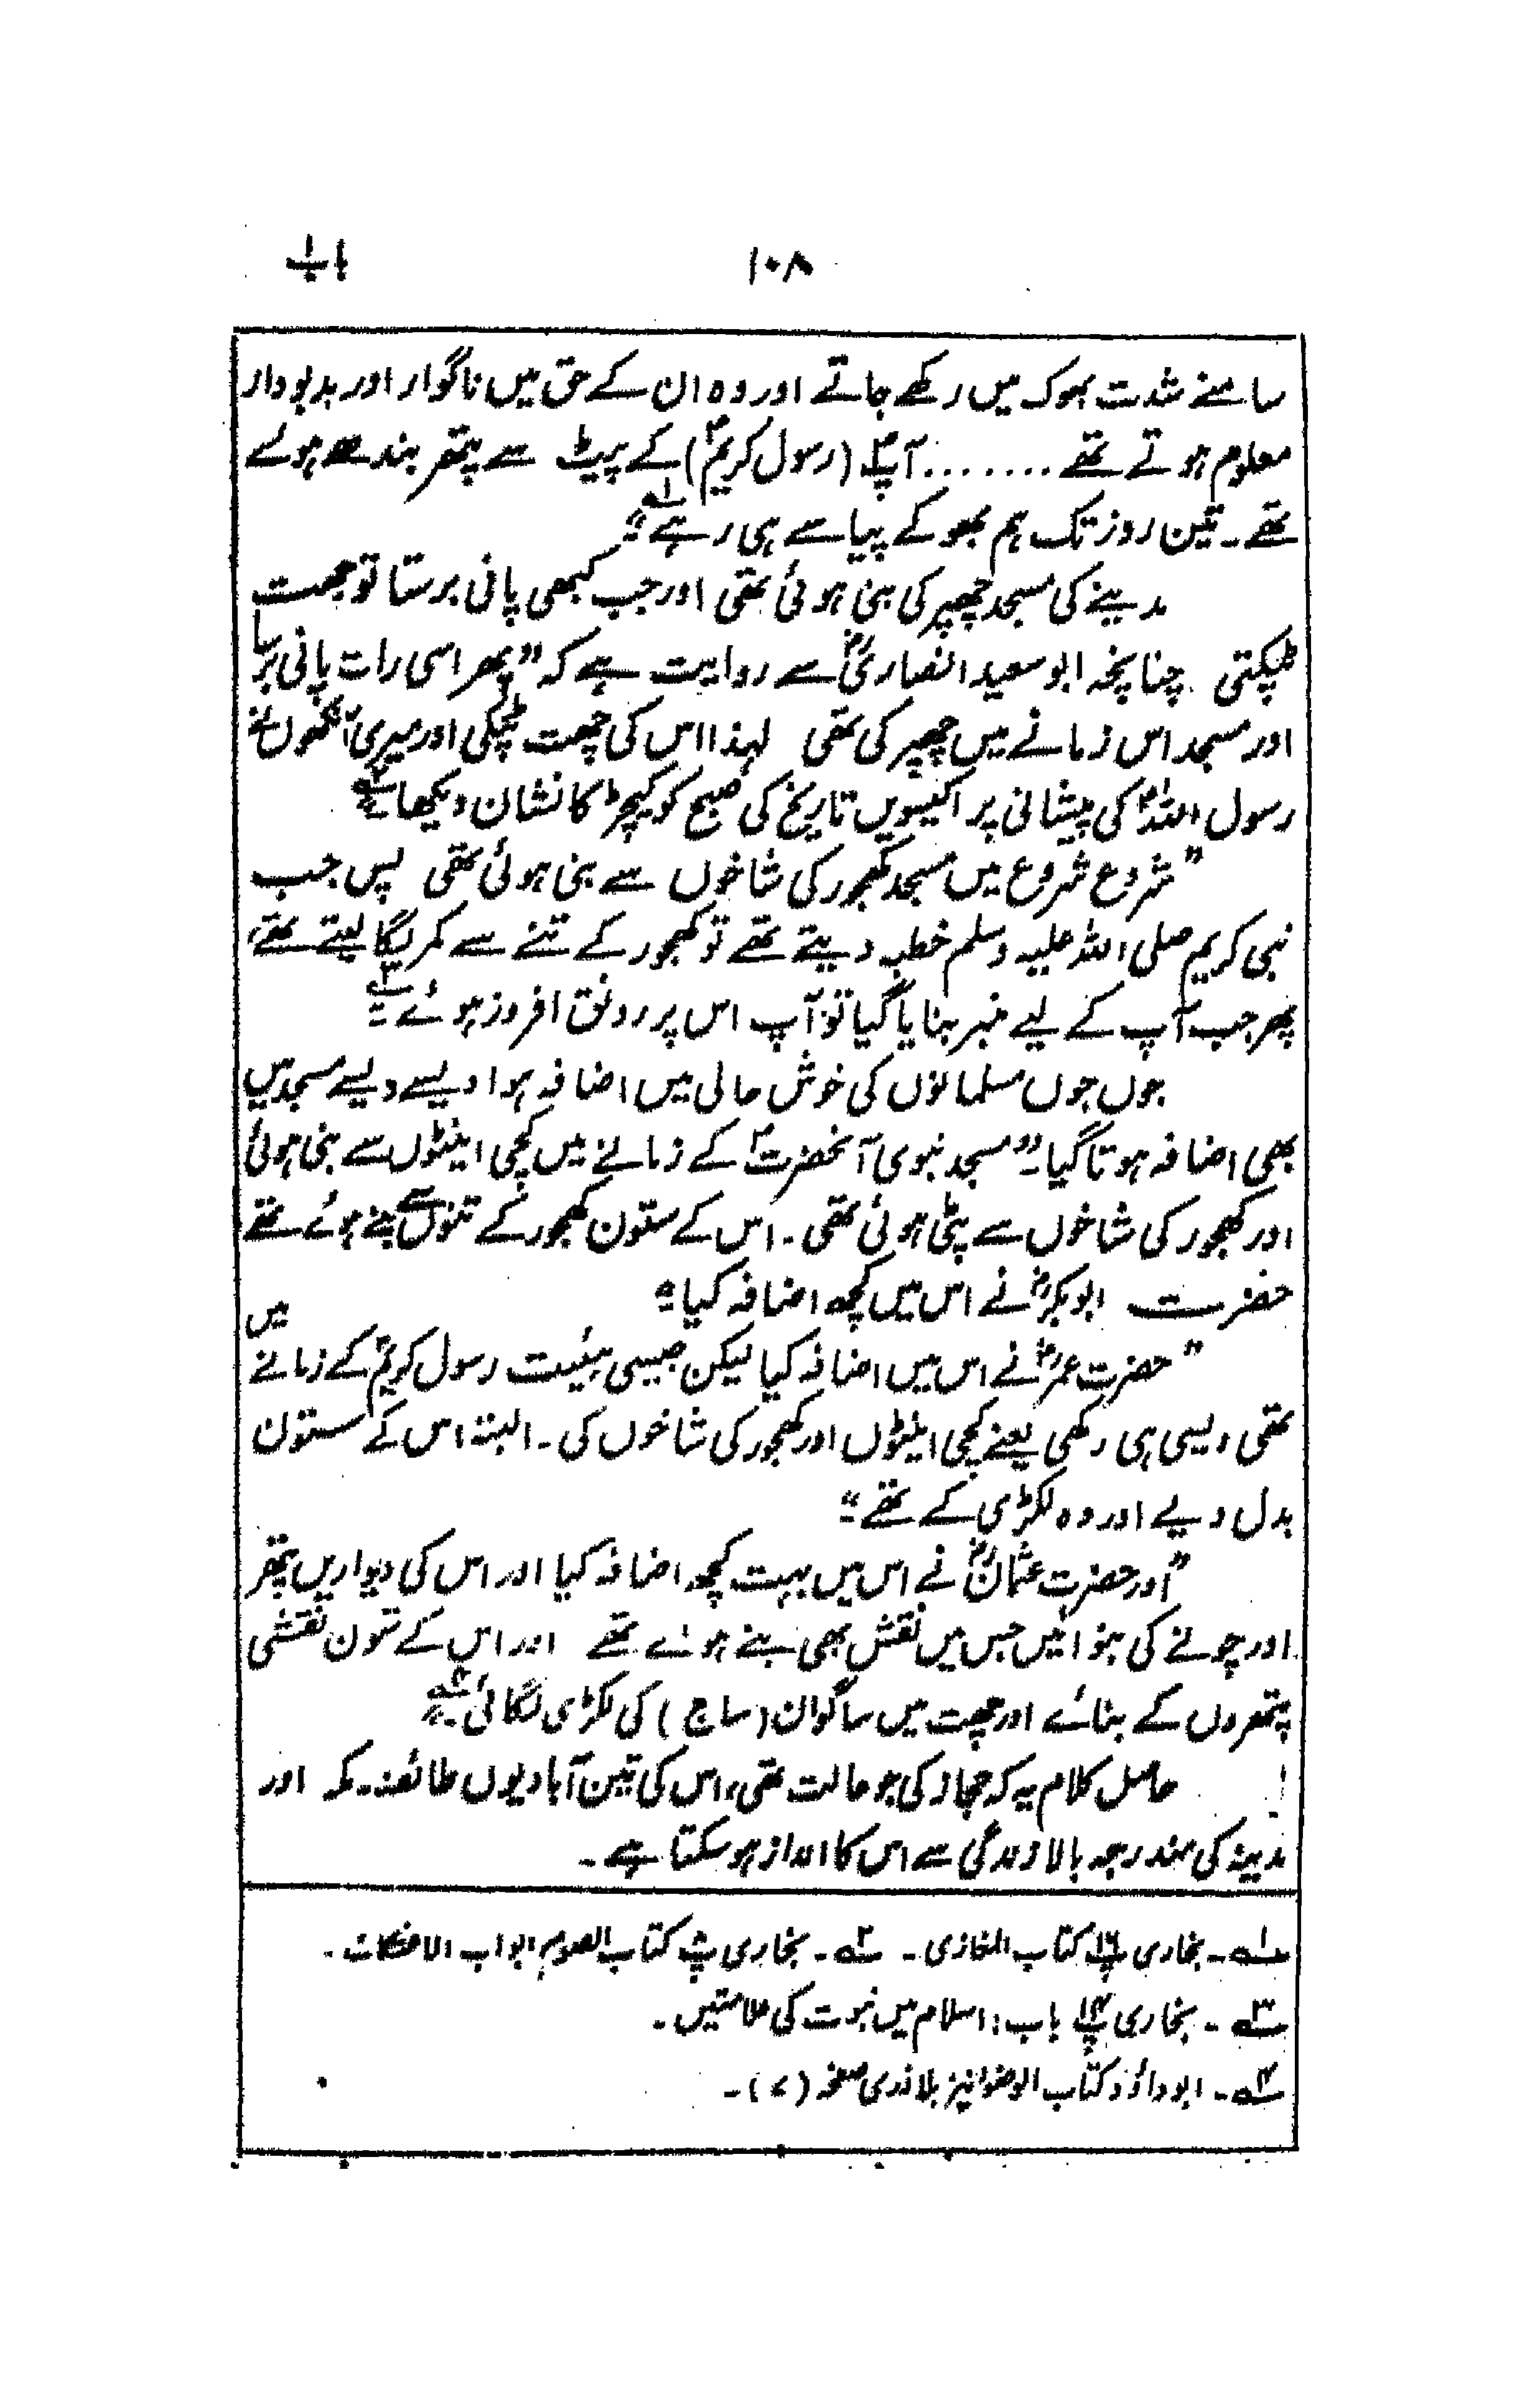 ۱۰۸ باب
سامنے شدت بھوک میں رکھے جاتے اور وہ ان کے حق میں ناگوار اور بدبودار
معلوم ہوتے تھے ....... آپؐ (رسول کریمؐ) کے پیٹ سے پتھر بندھے ہوئے
تھے۔ تین روز تک ہم بھوکے پیاسے ہی رہے"۔ ؎۱
مدینے کی مسجد چھپر کی بنی ہوئی تھی اور جب کبھی پانی برستا تو چھت
ٹپکتی چنانچہ ابو سعید انصاریؓ سے روایت ہے کہ "پھر اسی رات پانی برسا
اور مسجد اس زمانے میں چھپر کی تھی لہذا اس کی چھت ٹپکی اور میری آنکھوں نے
رسول اللہؐ کی پیشانی پر اکیسویں تاریخ کی صبح کو کیچڑ کا نشان دیکھا"۔ ؎۲
"شروع شروع میں مسجد کھجور کی شاخوں سے بنی ہوئی تھی پس جب
نبی کریم صلی اللہ علیہ وسلم خطبہ دیتے تھے تو کھجور کے تنے سے کمر لگا لیتے تھے،
پھر جب آپ کے لیے منبر بنایا گیا تو آپ اس پر رونق افروز ہوئے"۔ ؎۳
جوں جوں مسلمانوں کی خوش حالی میں اضافہ ہوا ویسے ویسے مسجد میں
بھی اضافہ ہوتا گیا۔ "مسجد نبوی آنحضرتؐ کے زمانے میں کچی اینٹوں سے بنی ہوئی
اور کھجور کی شاخوں سے پٹی ہوئی تھی۔ اس کے ستون کھجور کے تنوں سے بنے ہوئے تھے
حضرت ابوبکرؓ نے اس میں کچھ اضافہ کیا"۔
"حضرت عمرؓ نے اس میں اضافہ کیا لیکن جیسی ہیئت رسول کریمؐ کے زمانے میں
تھی ویسی ہی رکھی یعنے کچی اینٹوں اور کھجور کی شاخوں کی۔ البتہ اس کے ستون
بدل دیے اور وہ لکڑی کے تھے"۔
"اور حضرت عثمانؓ نے اس میں بہت کچھ اضافہ کیا اور اس کی دیواریں پتھر
اور چونے کی بنوائیں جس میں نقش بھی بنے ہوئے تھے اور اس کے ستون نقشی
پتھروں کے بنائے اور چھت میں ساگوان (ساج) کی لکڑی لگائی"۔ ؎۴
حاصل کلام یہ کہ حجاز کی جو حالت تھی، اس کی تین آبادیوں طائف۔ مکہ اور
مدینہ کی مندرجہ بالا زندگی سے اس کا انداز ہو سکتا ہے۔
؎۱۔ بخاری پ۱۶ کتاب المغازی۔ ؎۲۔ بخاری پ کتاب الصوم ابواب الاعتکاف۔
؎۳۔ بخاری پ۱۴ باب: اسلام میں نبوت کی علامتیں۔
؎۴۔ ابو داؤد کتاب الوضو نیز بلاذری صفحہ (۷)۔